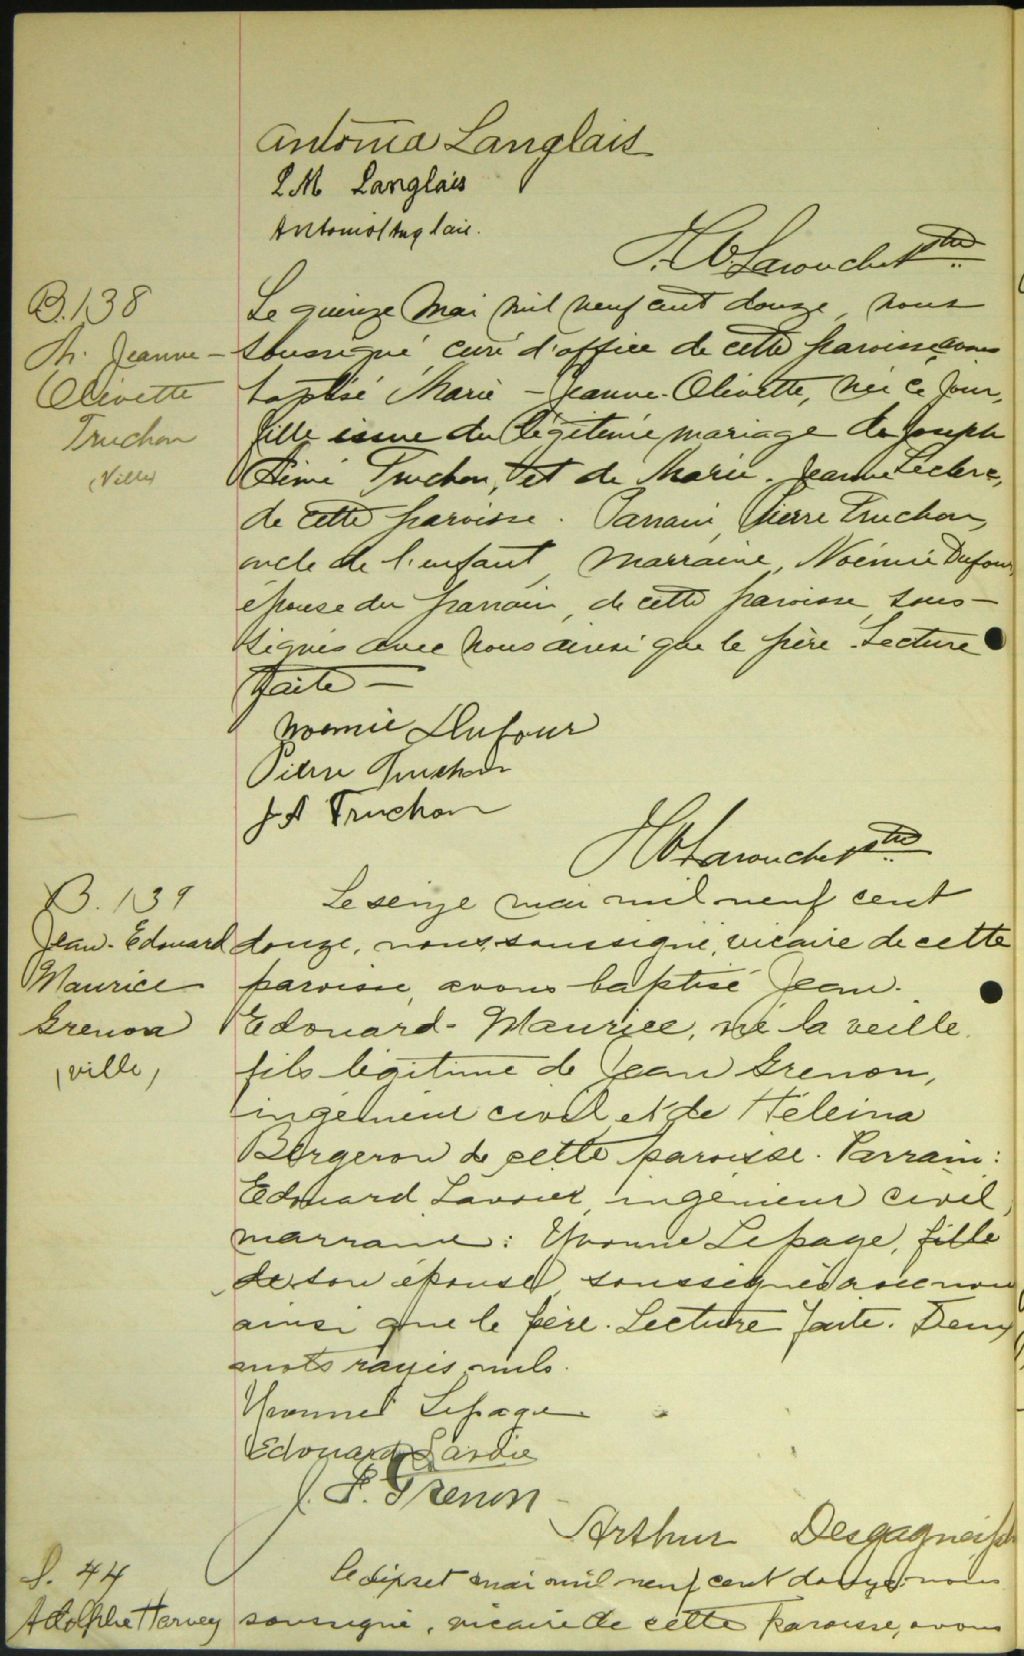 Antonia Langlais
L M Langlais
Antonio Langlais.
B. 138
M. Jeanne-
Olivette
Truchon
(Ville)
Le quinze mai mil neuf cent douze, nous
soussigné curé d'office de cette paroisse avons
baptisé Marie-Jeanne-Olivette, née ce jour,
fille issue du légitime mariage de Joseph
Aimé Truchon, et de Marie-Jeanne Leclerc,
de cette paroisse. Parrain, Pierre Truchon,
oncle de l'enfant, marraine, Noémie Dufour,
épouse du parrain, de cette paroisse, sous-
signés avec nous ainsi que le père. Lecture
faite-
Noemie Dufour
Pierre Truchon
J A Truchon
B. 139
Jean-Edouard
Maurice
Grenon
(ville)
Le seize mai mil neuf cent
douze, nous soussigné, vicaire de cette
paroisse, avons baptisé Jean-
Edouard-Maurice, né la veille,
fils légitime de Jean Grenon,
ingénieur civil et de Héleina
Bergeron de cette paroisse. Parrain:
Edouard Lavoie, ingénieur civil,
marraine: Yvonne Lepage, fille
de son épouse, soussignés avec nous
ainsi que le père. Lecture faite. Deux
mots rayés nuls.
Yvonne Lepage
Edouard Lavoie
J. E. Grenon
Arthur Desgagné, ptr
S. 44
Adolphe Harvey
Le dix-sept mai mil neuf cent douze, nous
soussigné, vicaire de cette paroisse, avons